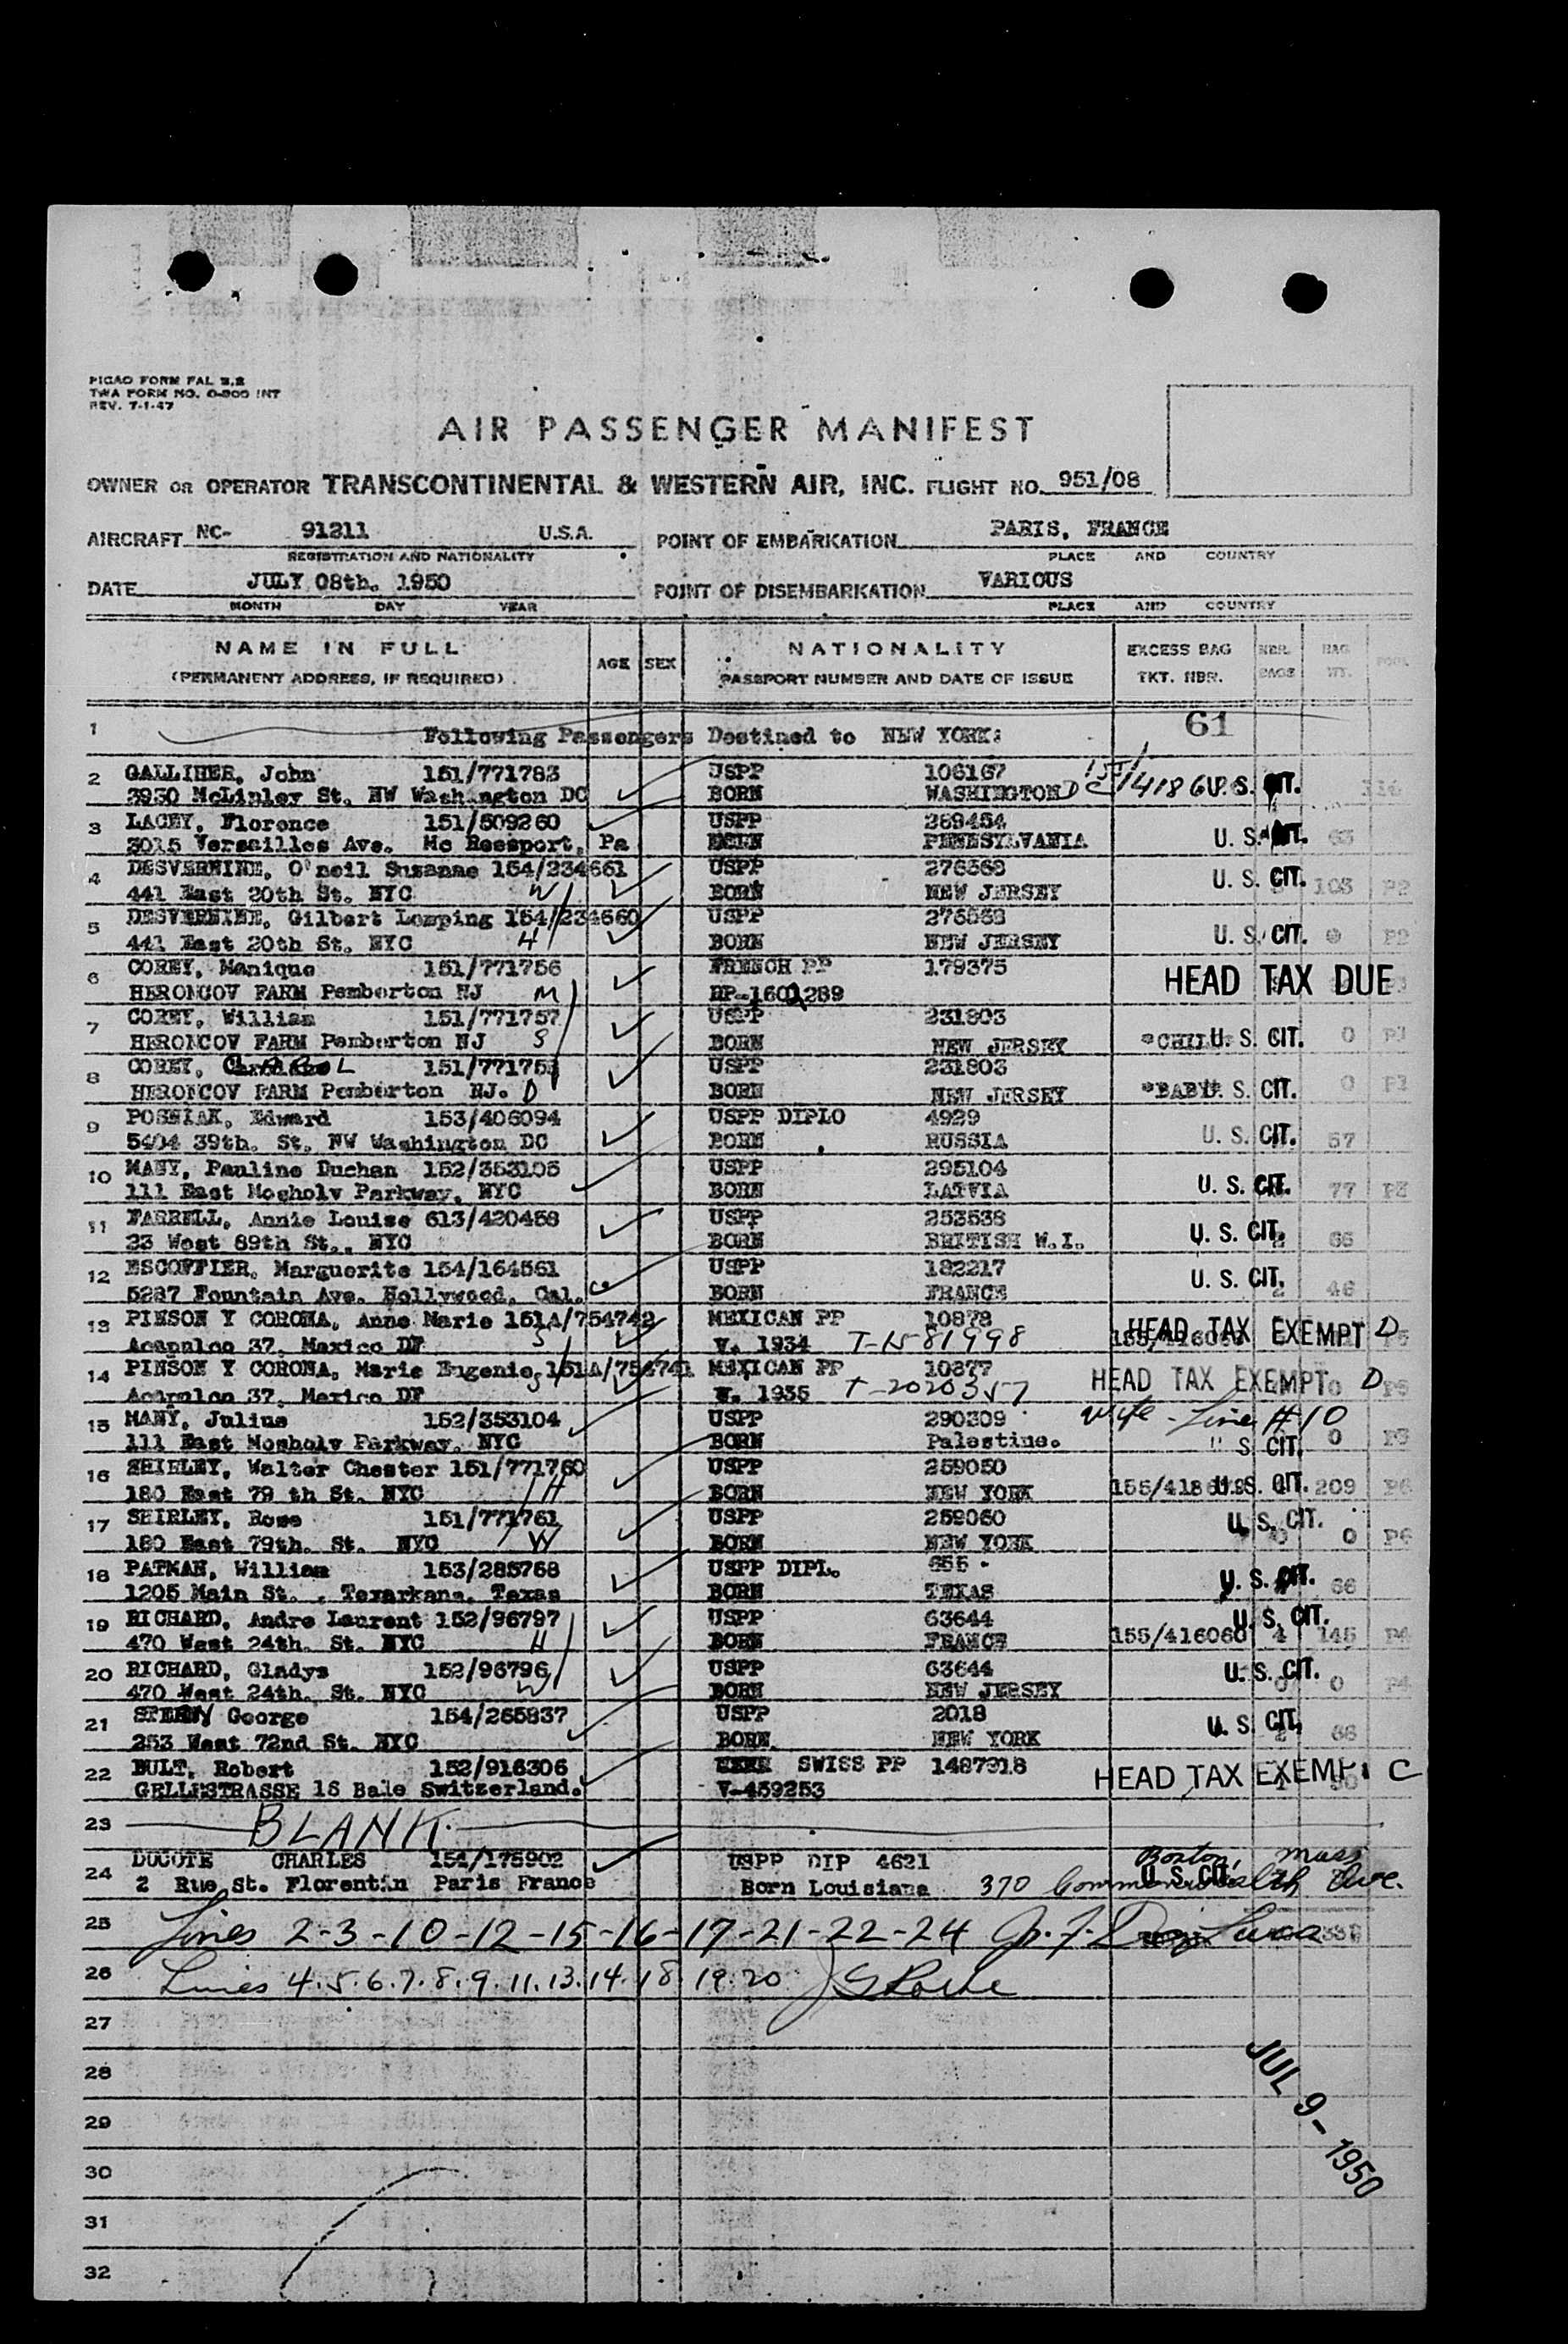 PICAO FORM FAL 2.2
TWA FORM NO. O-800 INT
REV. 7-1-47
AIR PASSENGER MANIFEST
OWNER OR OPERATOR TRANSCONTINENTAL & WESTERN AIR, INC. FLIGHT NO. 951/08
AIRCRAFT NC- 91211 U.S.A. POINT OF EMBARKATION PARIS, FRANCE
REGISTRATION AND NATIONALITY PLACE AND COUNTRY
DATE JULY 08th. 1950 POINT OF DISEMBARKATION VARIOUS
MONTH DAY YEAR PLACE AND COUNTRY
NAME IN FULL AGE SEX NATIONALITY EXCESS BAG NBR. BAG
(PERMANENT ADDRESS, IF REQUIRED) PASSPORT NUMBER AND DATE OF ISSUE TKT. NBR. BAGS WT. POOL
1 Following Passengers Destined to NEW YORK: 61
2 GALLIHER, John 151/771783 USPP 106167
3930 McLinley St. NW Washington DC BORN WASHINGTON DC U. S. CIT.
3 LACEY, Florence 151/509260 USPP 289454
3015 Versailles Ave. Mc Keesport, Pa PENNSYLVANIA U. S. CIT. 63
4 DESVERNINE, O'neil Suzanne 154/234661 USPP 276568
441 East 20th St. NYC W BORN NEW JERSEY U. S. CIT. 103 P2
5 DESVERNINE, Gilbert Lomping 154/234660 USPP 276568
441 East 20th St. NYC H BORN NEW JERSEY U. S. CIT. 0 P2
6 COREY, Monique 151/771756 FRENCH PP 179375 HEAD TAX DUE
HERONCOV FARM Pemberton NJ M RP-1601289
7 COREY, William 151/771757 USPP 231803
HERONCOV FARM Pemberton NJ S BORN NEW JERSEY *CHILD U. S. CIT. 0 P1
8 COREY, 151/771758 USPP 231803
HERONCOV FARM Pemberton NJ. D BORN NEW JERSEY *BABY U. S. CIT. 0 P1
9 POSNIAK, Edward 153/406094 USPP DIPLO 4929
5404 39th. St. NW Washington DC BORN RUSSIA U. S. CIT. 57
10 MANY, Pauline Duchan 152/353105 USPP 295104
111 East Mosholv Parkway, NYC BORN LATVIA U. S. CIT. 77 P3
11 FARRELL, Annie Louise 613/420458 USPP 253538
23 West 89th St., NYC BORN BRITISH W.I. U. S. CIT. 66
12 ESCOFFIER, Marguerite 154/164561 USPP 182217
5287 Fountain Ave. Hollywood, Cal. BORN FRANCE U. S. CIT. 2 46
13 PINSON Y CORONA, Anne Marie 151A/754742 MEXICAN PP 10878
Acapulco 37, Mexico DF S V. 1934 T-1581998 HEAD TAX EXEMPT D P5
14 PINSON Y CORONA, Marie Eugenie 151A/754741 MEXICAN PP 10877
Acapulco 37, Mexico DF S V. 1935 T-2020357 HEAD TAX EXEMPT D P5
15 MANY, Julius 152/353104 USPP 290309 Wife - Line #10
111 East Mosholv Parkway, NYC BORN Palestine. U S CIT. 0 P3
16 SHIRLEY, Walter Chester 151/771760 USPP 259060
180 East 79 th St. NYC H BORN NEW YORK U. S. CIT. 209 P6
17 SHIRLEY, Rose 151/771761 USPP 259060
180 East 79th. St. NYC W BORN NEW YORK U. S. CIT. 0 0 P6
18 PATMAN, William 153/285768 USPP DIPL. 655
1205 Main St. , Texarkana, Texas BORN TEXAS U. S. CIT. 66
19 RICHARD, Andre Laurent 152/96797 USPP 63644 U. S. CIT.
470 West 24th. St. NYC H BORN FRANCE 155/416060 4 145 P4
20 RICHARD, Gladys 152/96796 USPP 63644
470 West 24th. St. NYC W BORN NEW JERSEY U. S. CIT. 0 0 P4
21 George 154/265837 USPP 2018
253 West 72nd St. NYC BORN NEW YORK U. S. CIT. 2 66
22 BULT, Robert 152/916306 SWISS PP 1487918
GELLESTRASSE 18 Bale Switzerland. V-459253 HEAD TAX EXEMPT C
23 BLANK
24 DUCOTE CHARLES 154/175902 USPP DIP 4621 Boston, Mass
2 Rue St. Florentin Paris France Born Louisiana 370 Commonwealth Ave. U. S. CIT.
25 Lines 2-3-10-12-15-16-17-21-22-24
26 Lines 4.5.6.7.8.9.11.13.14.18 19.20
27
28
29
30
31
32
JUL 9- 1950